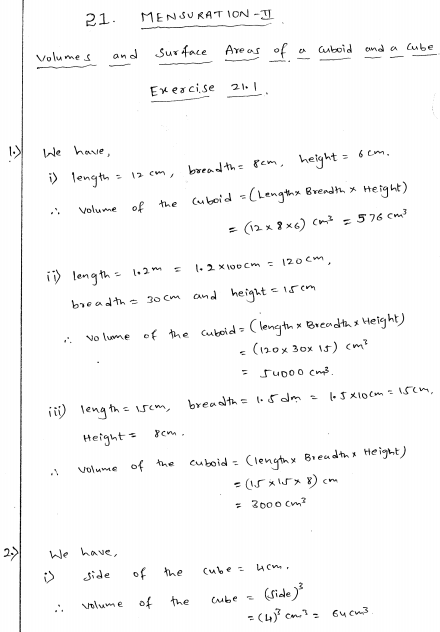 21. MENSURATION-II
Volumes and Surface Areas of a Cuboid and a Cube
Exercise 21.1
1.) We have,
i) length = 12 cm, breadth = 8cm, height = 6 cm.
∴ Volume of the cuboid = (Length × Breadth × Height)
= (12 × 8 × 6) cm³ = 576 cm³
ii) length = 1.2m = 1.2 × 100cm = 120cm,
breadth = 30cm and height = 15cm
∴ Volume of the cuboid = (length × Breadth × Height)
= (120 × 30 × 15) cm³
= 54000 cm³.
iii) length = 15cm, breadth = 1.5 dm = 1.5 × 10cm = 15cm,
Height = 8cm.
∴ Volume of the cuboid = (length × Breadth × Height)
= (15 × 15 × 8) cm
= 3000 cm³
2.) We have,
i) side of the cube = 4cm.
∴ volume of the cube = (side)³
= (4)³ cm³ = 64 cm³